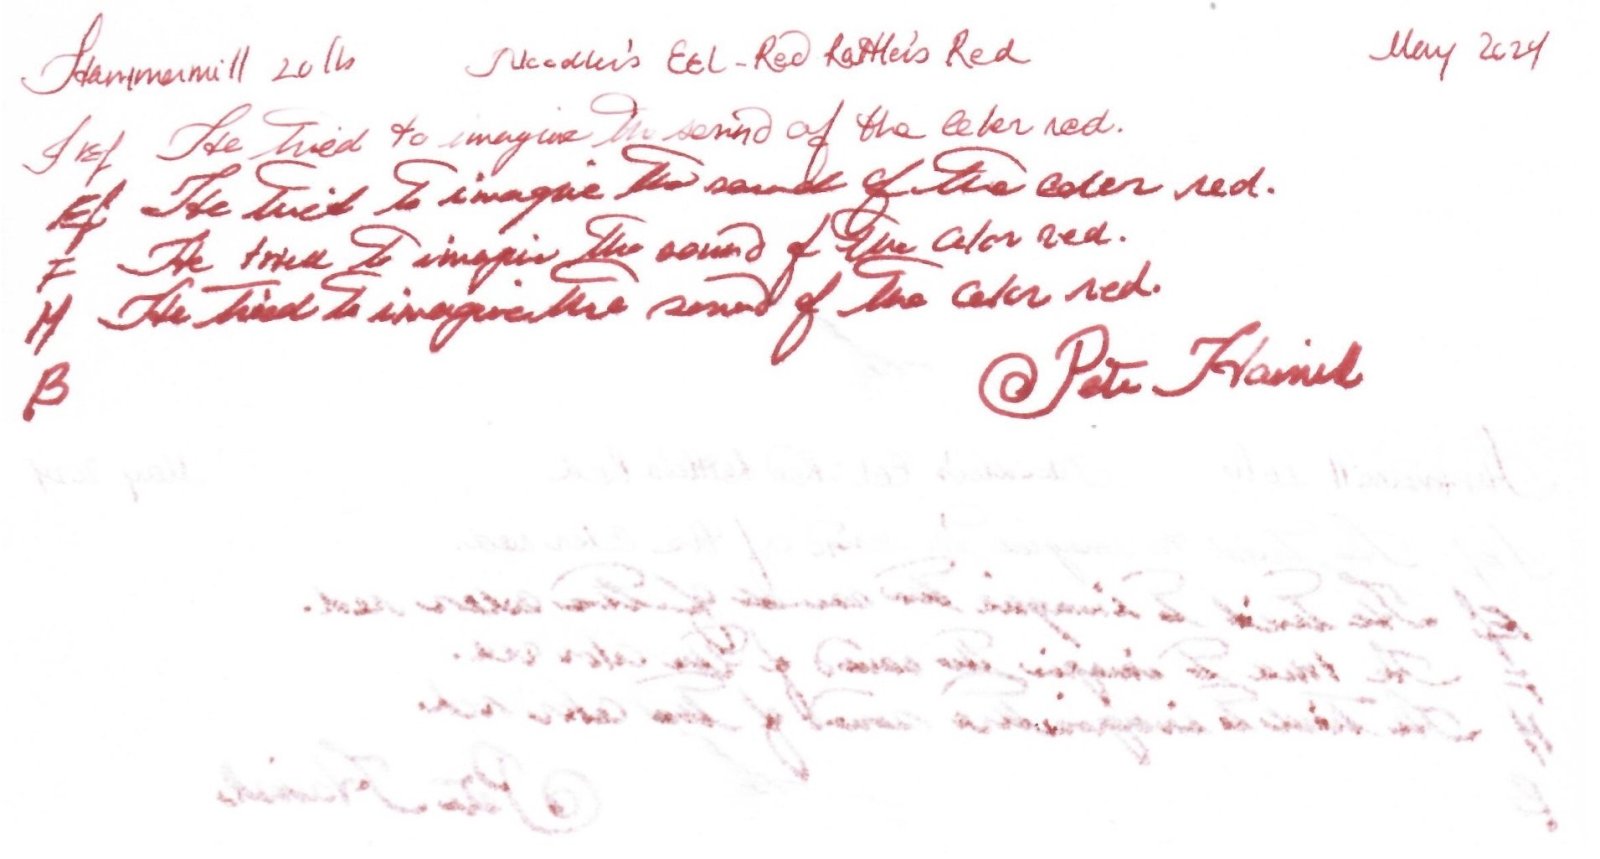 Hammermill 20 lb Noodler's EEL-Red Rattler's Red May 2024
He tried to imagine the sound of the color red.
EF He tried to imagine the sound of the color red.
F He tried to imagine the sound of the color red.
M He tried to imagine the sound of the color red.
B @Pete